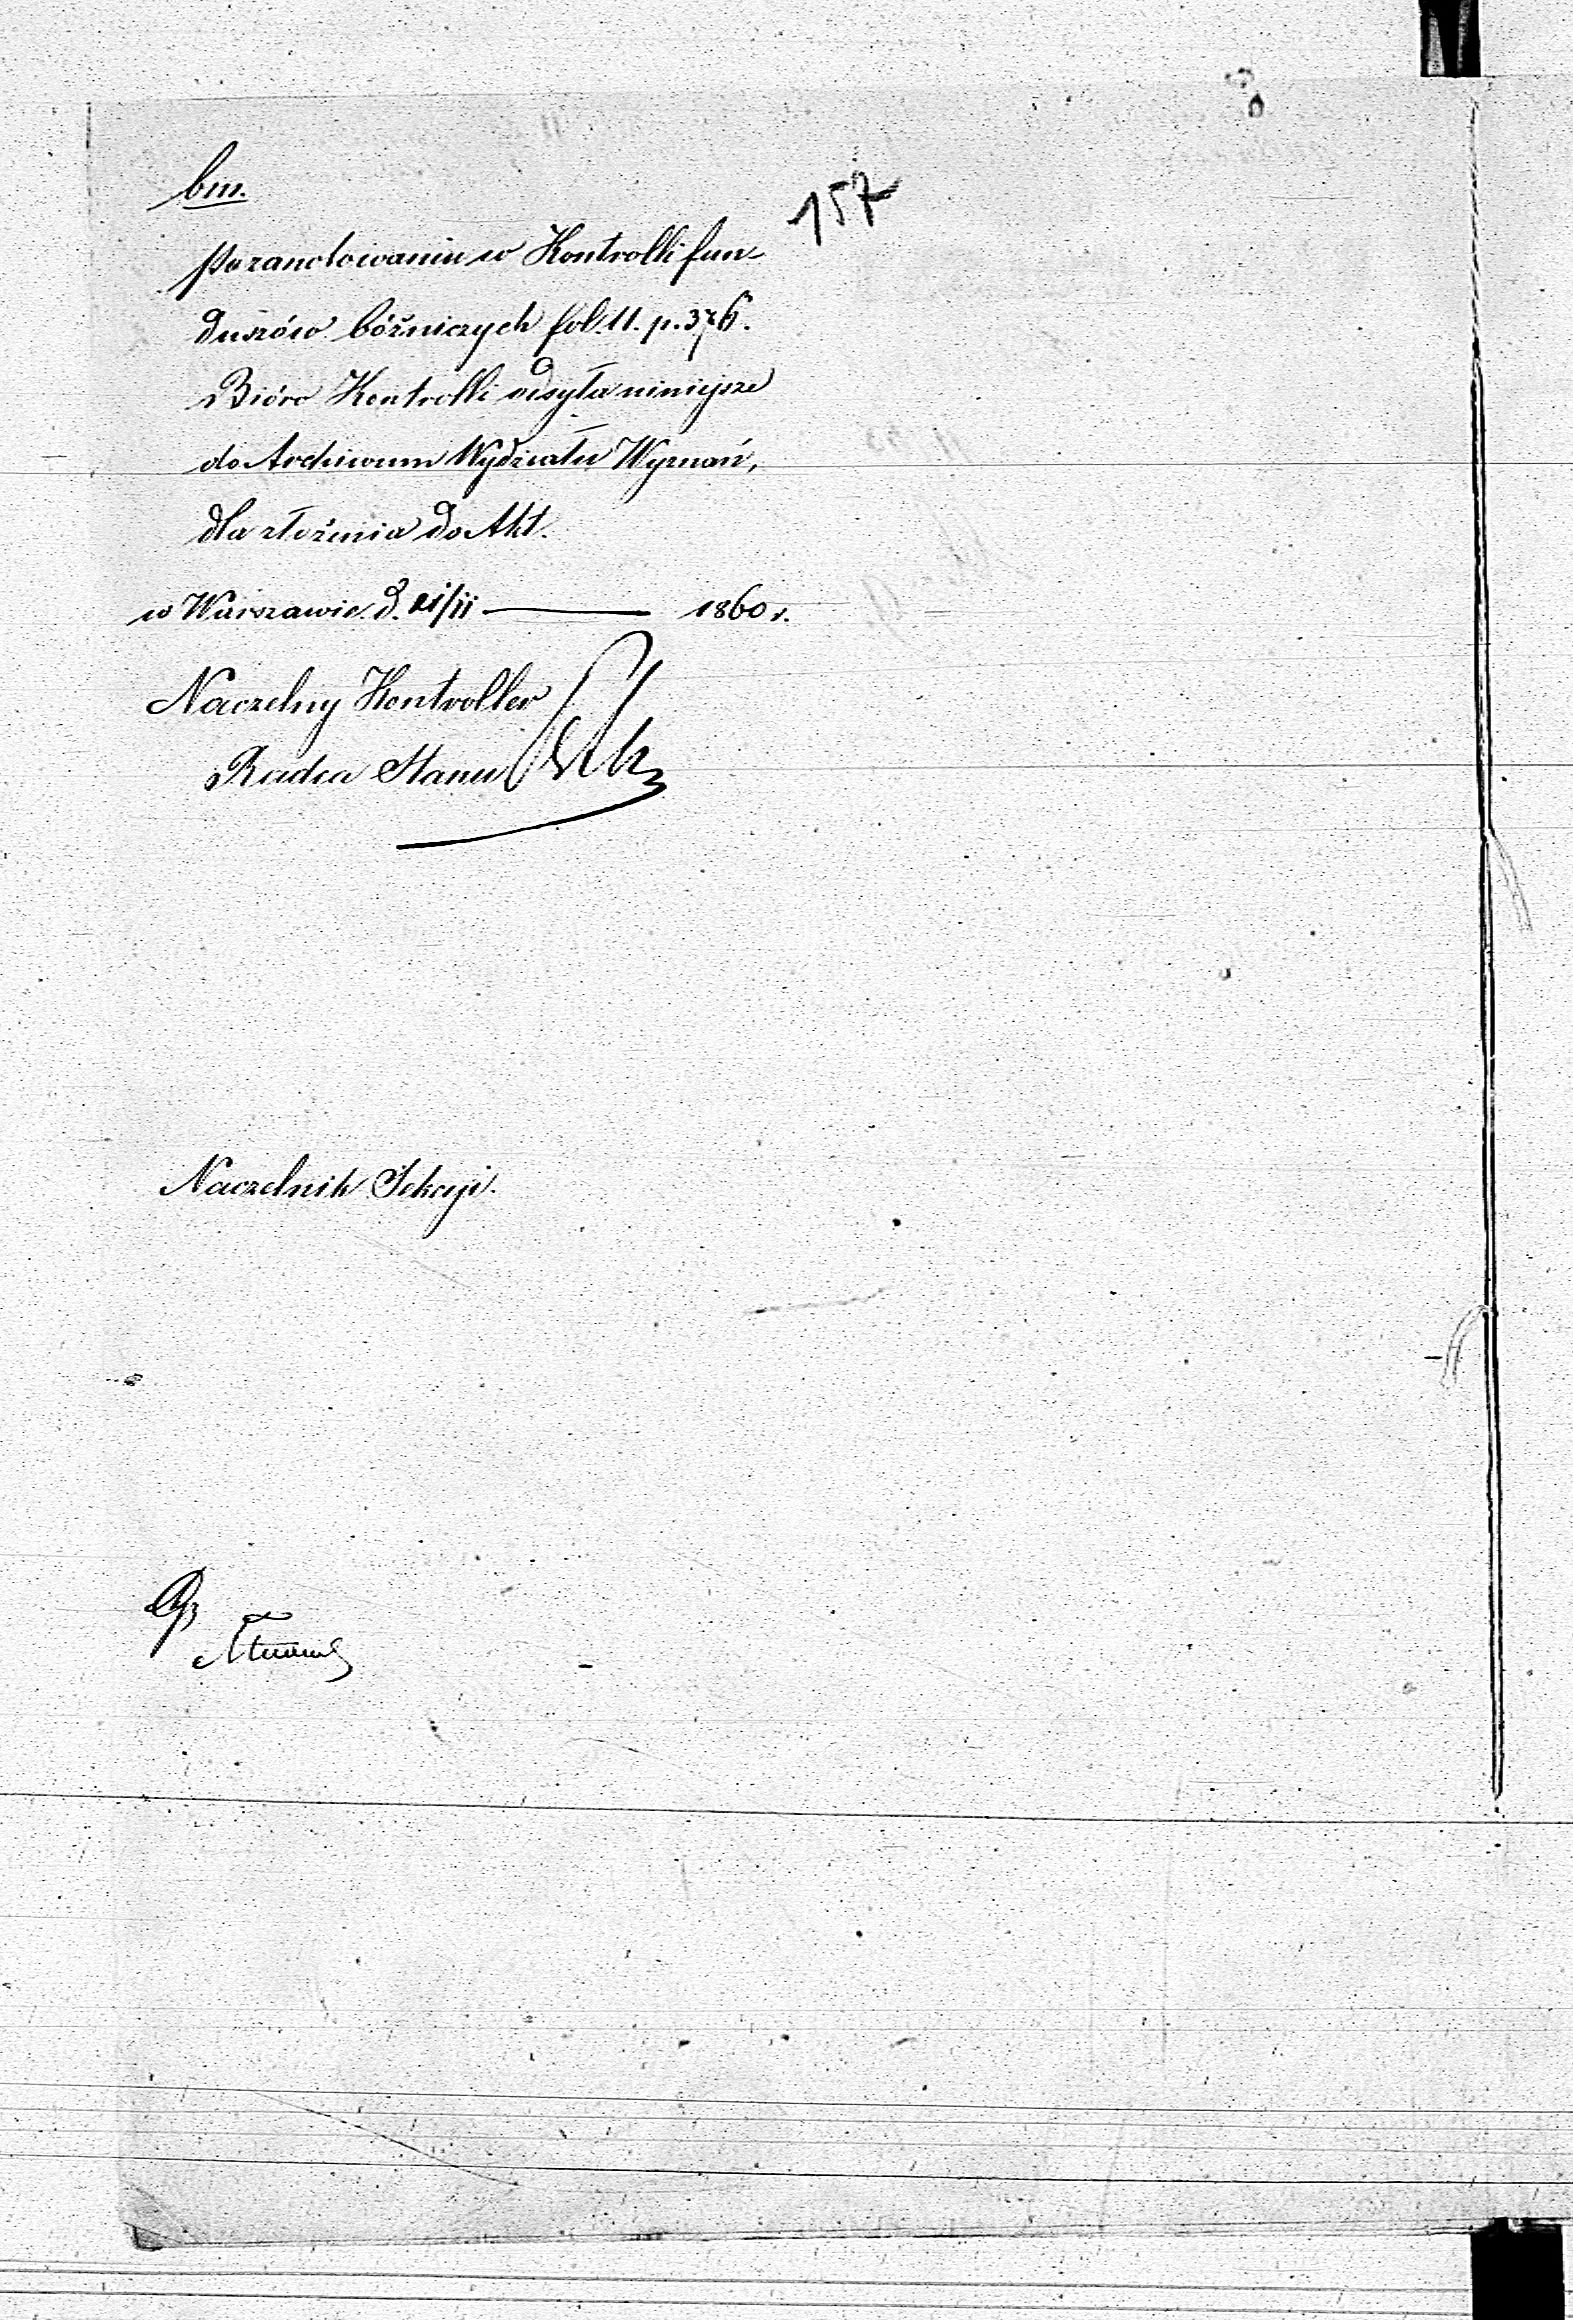 bm.
157
Po zanotowaniu w Kontrolli fun-
duszów bóżniczych fol. 11. p. 376.
Bióro Kontrolli odsyła niniejsze
do Archiwum Wydziału Wyznań,
dla złożenia do Akt.
w Warszawie d. 1860 r.
Naczelny Kontroller
Radca Stanu
Naczelnik Sekcyi.